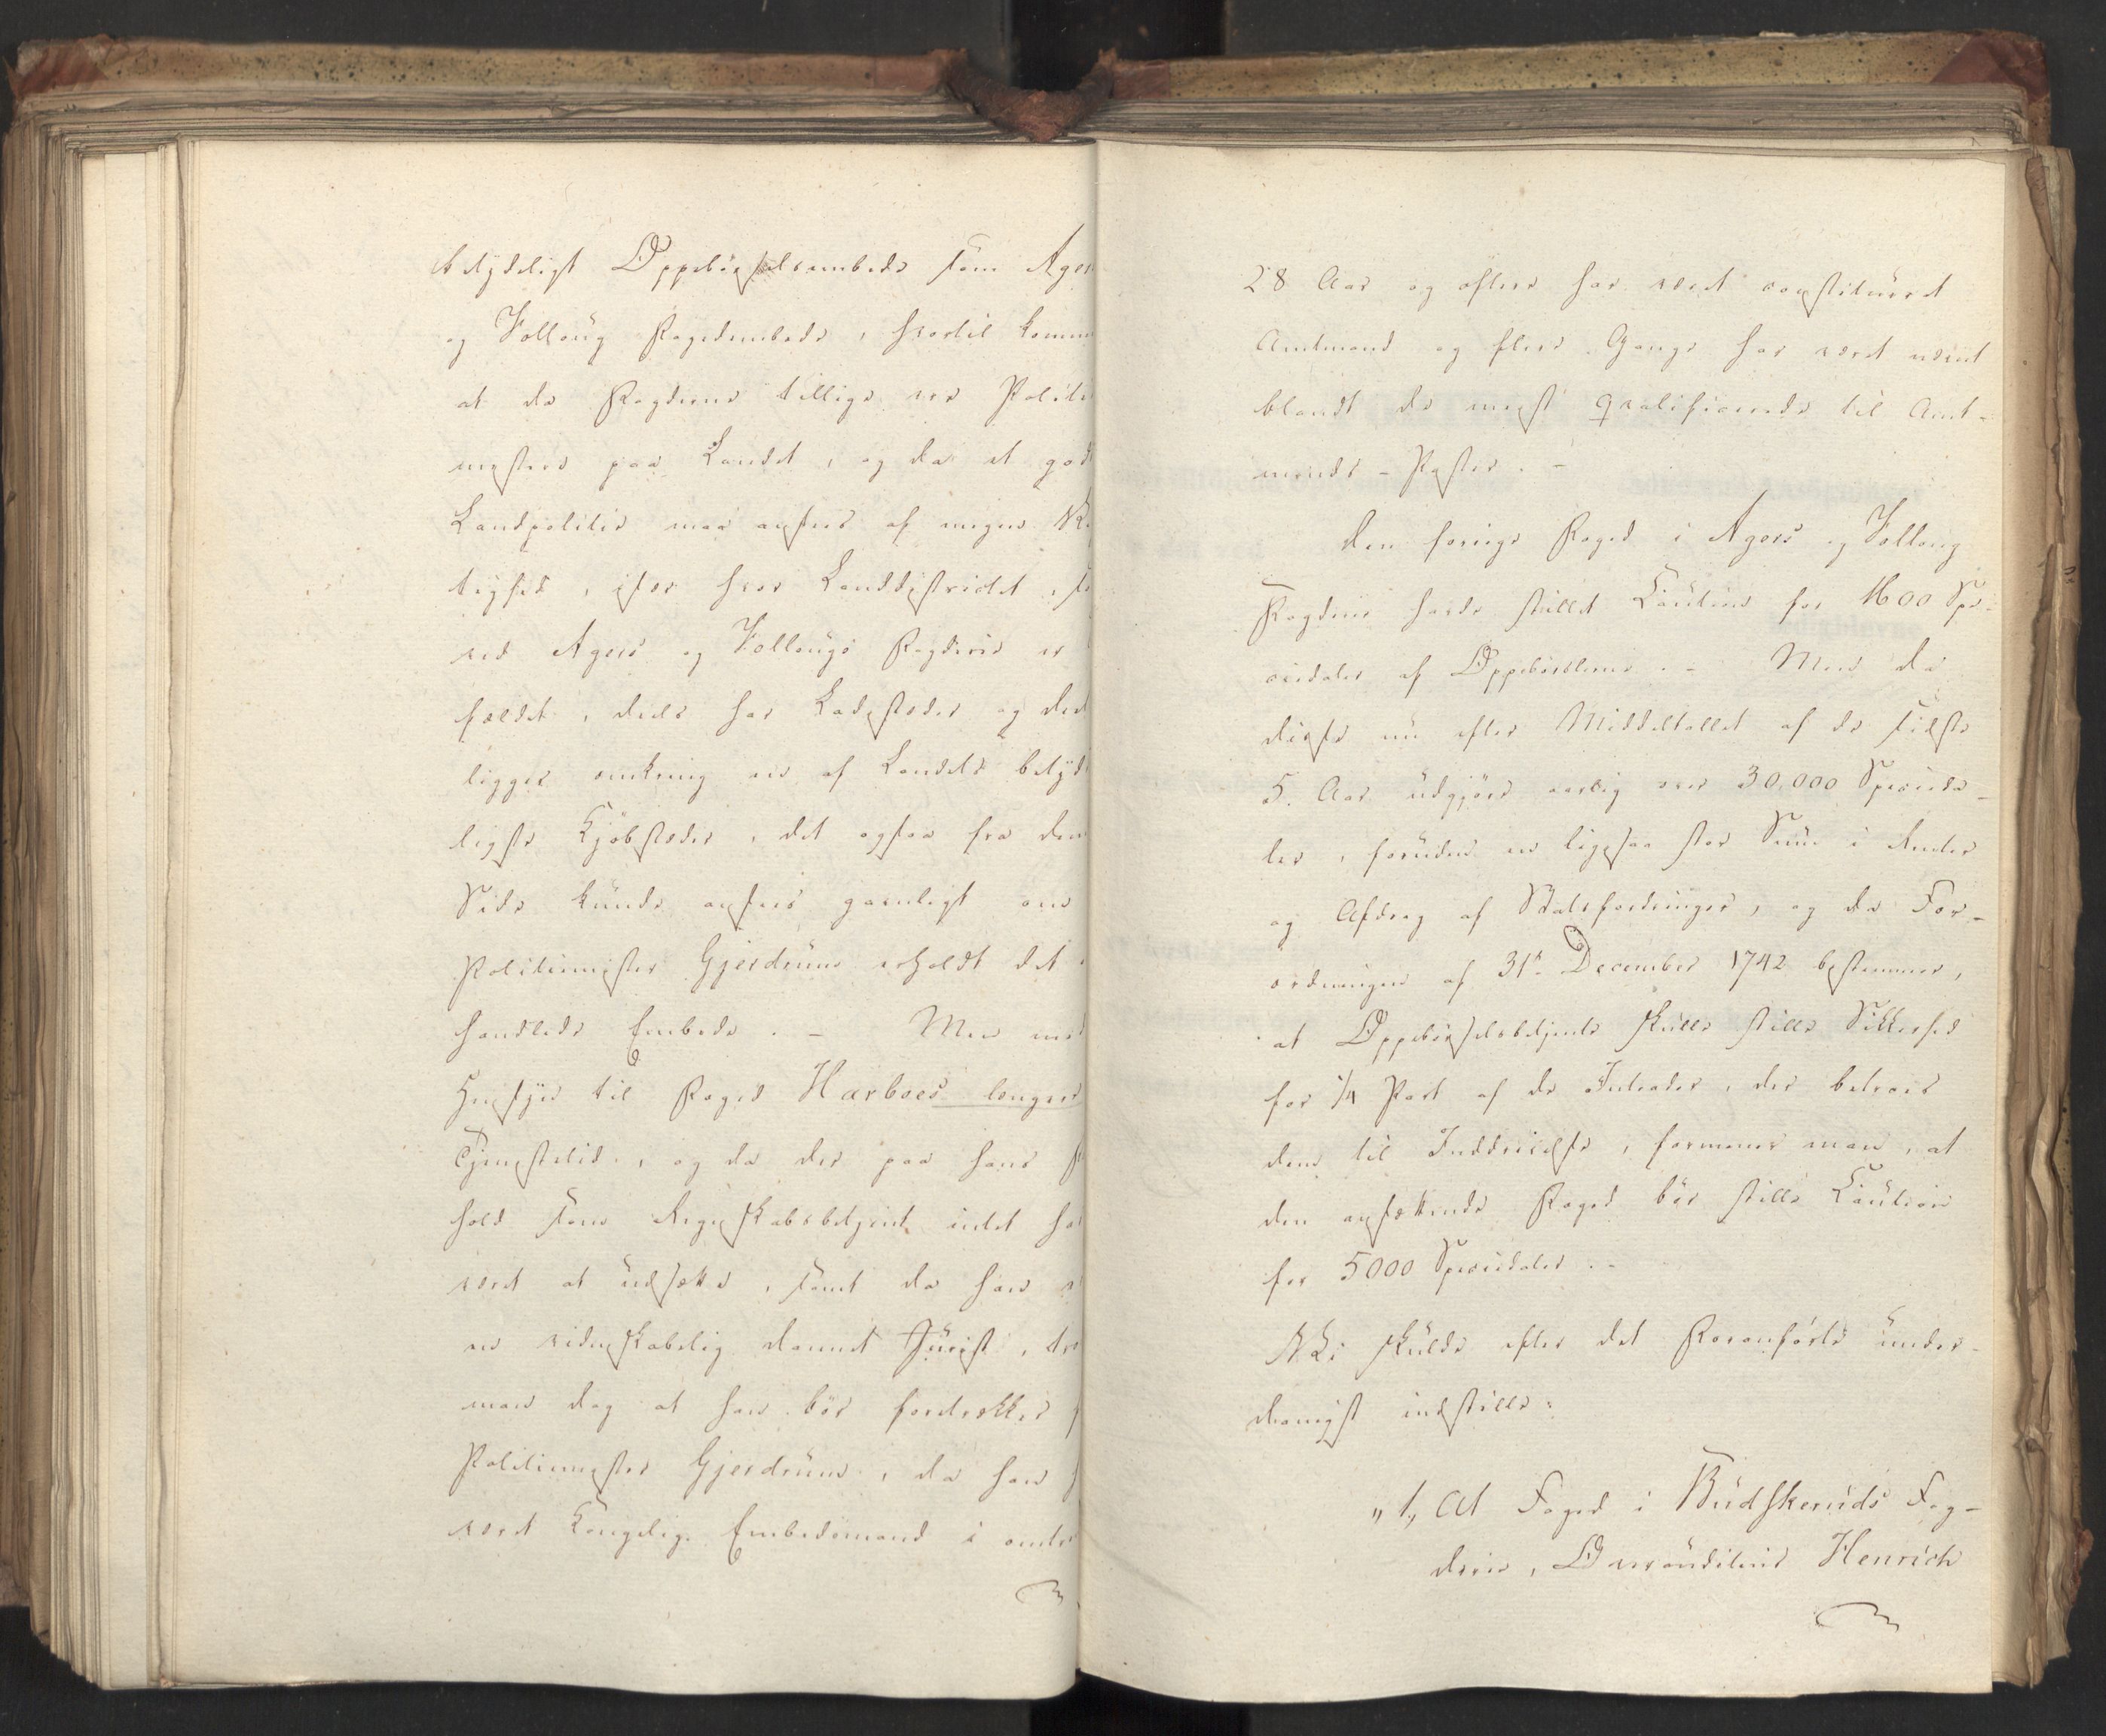 betydeligt Oppebørselsembede som Ager
og Folloug Fogedembede, hvortil komm
at da Fogderne tillige ere Politi
mestere paa Landet, og da et godt
Landpolitie maa ansees af megen Vi
tighed, især hvor Landdistrictet, so
ved Agers og Follougs Fogderie er
fældet, deels har Ladestæder og deel
ligger omkring en af Landets betyde
ligste Kjøbstæder, det ogsaa fra den
Side kunde ansees gavnligt om
Politimester Gjerdrum erholdt det
handlede Embede. – Men med
Hensyn til Foged Harboes længere
Tjenestetid, og da der paa hans F
hold som Regnskabsbetjent intet har
været at udsætte, samt da han e
en videnskabelig dannet Jurist, tro
man dog at han bör foretrækkes f
Politimester Gjerdrum, da han h
været Kongelig Embedsmand i omtr
28 Aar og oftere har været constitueret
Amtmand og flere Gange har været nævnt
blandt de mest qvalificerede til Amt-
mands-Poster. –
Den forrige Foged i Agers og Folloug
Fogderie havde stillet Caution for 1600 Spe-
ciedaler af Oppebørslerne. – Men da
disse nu efter Middeltallet af de sidste
5 Aar udgjøre aarlig over 30,000 Specieda-
ler, foruden en ligesaa stor Sum i Renter
og Afdrag af Statsfordringer, og da For-
ordningen af 31te December 1742 bestemmer,
at Oppebørselsbetjente skulle stille Sikkerhed
for 1/4 Part af de Intrader, der betroes
dem til Inddrivelse, formener man, at
den ansættende Foged bör stille Caution
for 5000 Speciedaler. –
Vi skulde efter det Foranførte under-
danigst indstille:
"1, At Foged i Budskeruds Fog-
derie, Overauditeur Henrich